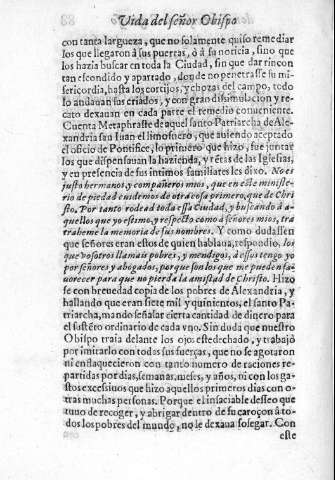 Vida del señor Obispo
con tanta largueza, que no solamente quiso remediar
los que llegaron à sus puertas, ò à su noticia, sino que
los hazia buscar en toda la Ciudad, sin que dar rincon
tan escondido y apartado, donde no penetrasse su mi-
sericordia, hasta los cortijos, y chozas del campo, todo
lo andauan sus criados, y con gran dissimulacion y re-
cato dexauan en cada parte el remedio conueniente.
Cuenta Metaphraste de aquel santo Patriarcha de Ale-
xandria san Iuan el limosnero, que auiendo aceptado
el oficio de Pontifice, lo primero que hizo, fue juntar
los que dispensauan la hazienda, y rētas de las Iglesias,
y en presencia de sus intimos familiares les dixo. No es
justo hermanos y compañeros mios, que en este ministe-
rio de piedad cuidemos de otra cosa primero, que de Chri
sto. Por tanto rodead toda essa Ciudad, y buscando à a-
quellos que yo estimo, y respecto como à señores mios, tra
traheme la memoria de sus nombres. Y como dudassen
que señores eran estos de quien hablaua, respondio, los
que vosotros llamais pobres, y mendigos, à essos tengo yo
por señores y abogados, porque son los que me pueden fa-
uorecer para que no pierda la amistad de Christo. Hizo
se con breuedad copia de los pobres de Alexandria, y
hallando que eran siete mil y quinientos, el santo Pa-
triarcha, mando señalar cierta cantidad de dinero para
el sustēto ordinario de cada vno. Sin duda que nuestro
Obispo traia delante los ojos este dechado, y trabajò
por imitarlo con todas sus fuerças, que no se agotaron
ni enflaquecieron con tanto numero de raciones re-
partidas por dias, semanas, meses, y años, ni con los ga-
stos excessiuos que hizo aquellos primeros dias con o-
tras muchas personas. Porque el insaciable desseo que
tuuo de recoger, y abrigar dentro de su caroçon à to-
dos los pobres del mundo, no le dexaua sosegar. Con
este